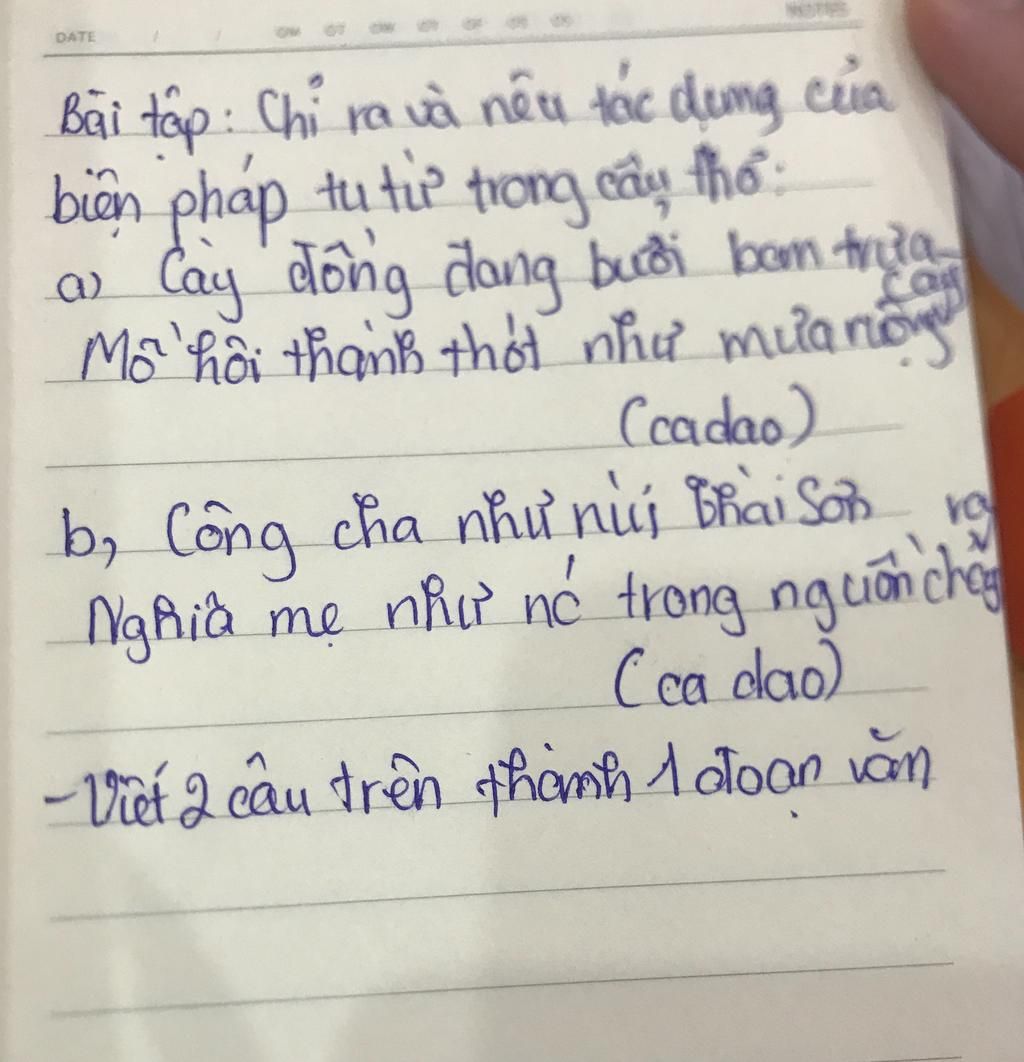 DATE / /
Bài tập: Chỉ ra và nêu tác dụng của
biện pháp tu từ trong câu thơ:
a) Cày đồng đang buổi ban trưa
Mồ hôi thánh thót như mưa ruộng cày
(ca dao)
b, Công cha như núi Thái Sơn
Nghĩa mẹ như nc trong nguồn chảy ra
(ca dao)
- Viết 2 câu trên thành 1 đoạn văn